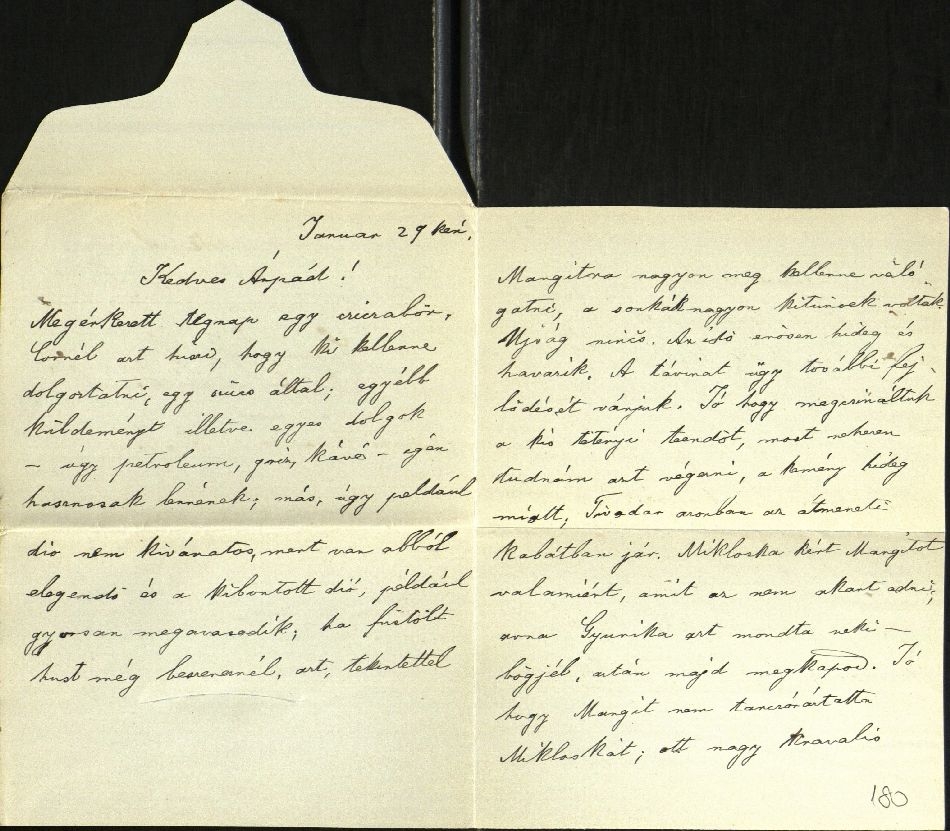 Januar 29 kén.
Kedves Árpád!
Megérkezett tegnap egy iriczabőr,
Cornél azt hiszi, hogy ki kellenne
dolgoztatni, egy szücs által; egyébb
küldeményt illetve egyes dolgok
– úgy petroleum, gríz, kávé – igén
hasznosak lennének; más, úgy például
dió nem kivánatos, mert van abból
elegendő és a kibontott dió, például
gyorsan megavasodik; ha füstölt
hust még beszereznél, azt, tekintettel
Mangitra nagyon meg kellenne váló-
gatni, a sonkák nagyon kitünőek voltak.
Ujság nincs. Az idő erősen hideg és
havazik. A távirat ügy további fej-
lődését várjuk. Jó hogy megcsináltuk
a kis tétényi teendőt, most nehezen
tudnám azt végezni, a kemény hideg
miatt; Tivadar azonban az átmeneti
kabátban jár. Mikloska kért Mangitot
valamiért, amit az nem akart adni;
arra Gyurika azt mondta neki –
bőgjél, aztán majd megkapod. Jó
hogy Mangit nem
Mikloskát; ott nagy kravalió
180